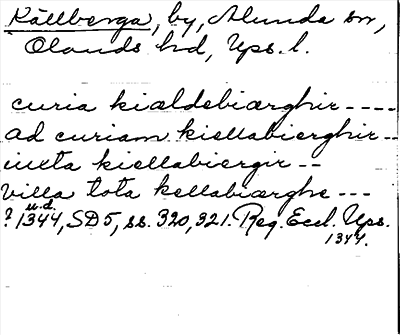 Källberga, by, Alunda sn,
Olands hd, Ups. l.
curia kiældebiærghir ----
ad curiam kiellabierghir --
iuxta kiellabiergir --
villa tota kellabiærghe ---
u.d.
? 1344, SD 5, ss. 320, 321. Reg. Eccl. Ups.
1344.